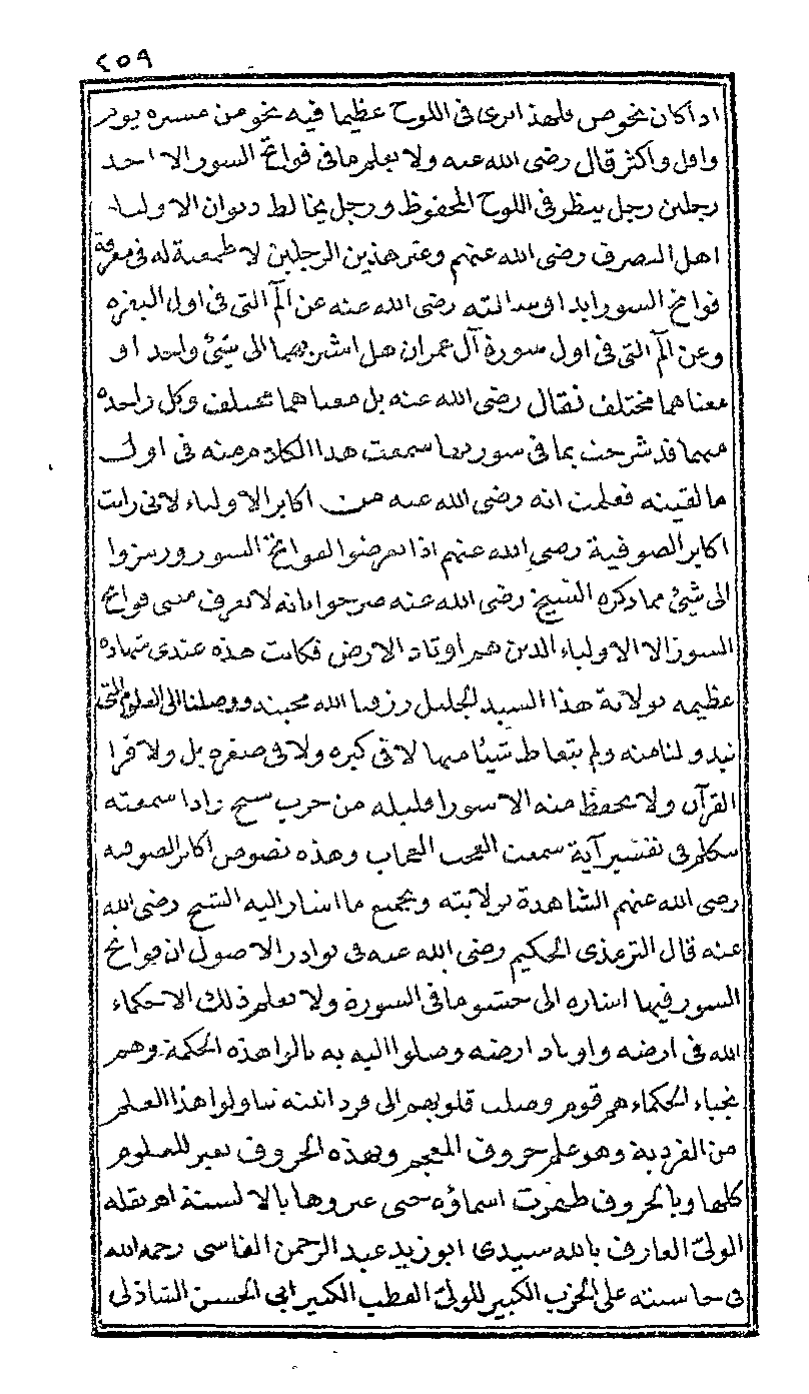 ٢٥٩
اذا كان بخوص فلهذا ترى فى اللوح عظيما فيه نحو من مسيرة يوم
واقل واكثر قال رضى الله عنه ولا يعلم ما فى فواتح السور الا احد
رجلين رجل ينظر فى اللوح المحفوظ ورجل يخالط ديوان الاولياء
اهل التصرف رضى الله عنهم وغير هذين الرجلين لا طمعية له فى معرفة
فواتح السور ابدا وسالته رضى الله عنه عن الٓمٓ التى فى اول البقرة
وعن الٓمٓ التى فى اول سورة آل عمران هل اشير بهما الى شئ واحد او
معناهما مختلف فقال رضى الله عنه بل معناهما مختلف وكل واحدة
منهما قد شرحت بما فى سورتها سمعت هذا الكلام منه فى اول
ما لقيته فعلمت انه رضى الله عنه من اكابر الاولياء لانى رايت
اكابر الصوفية رضى الله عنهم اذا تعرضوا لفواتح السور ورمزوا
الى شئ مما ذكره الشيخ رضى الله عنه صرحوا بانه لا يعرف معنى فواتح
السور الا الاولياء الذين هم اوتاد الارض فكانت هذه عندى شهادة
عظيمه بولاية هذا السيد الجليل رزقنا الله محبته ووصلنا الى العلوم التى
تبدو لنا منه ولم يتعاط شيئا منها لا فى كبره ولا فى صغره بل ولا قرا
القرآن ولا يحفظ منه الا سورا قليله من حزب سبح واذا سمعته
يتكلم فى تفسير آية سمعت العجب العجاب وهذه نصوص اكابر الصوفيه
رضى الله عنهم الشاهدة بولايته وبجميع ما اشار اليه الشيخ رضى الله
عنه قال الترمذى الحكيم رضى الله عنه فى نوادر الاصول ان فواتح
السور فيها اشارة الى حشو ما فى السورة ولا يعلم ذلك الا حكماء
الله فى ارضه واوتاد ارضه وصلوا اليه به نالوا هذه الحكمة وهم
نجباء الحكماء هم قوم وصلت قلوبهم الى فردانيته تناولوا هذا العلم
من الفردية وهو علم حروف المعجم وبهذه الحروف تعبر العلوم
كلها وبالحروف ظهرت اسماؤه حتى عبروها بالالسنة اهـ نقله
الولىّ العارف بالله سيدى ابو زيد عبد الرحمن الفاسى رحمه الله
فى حاشيته على الحزب الكبير للولىّ القطب الكبير ابى الحسن الشاذلى